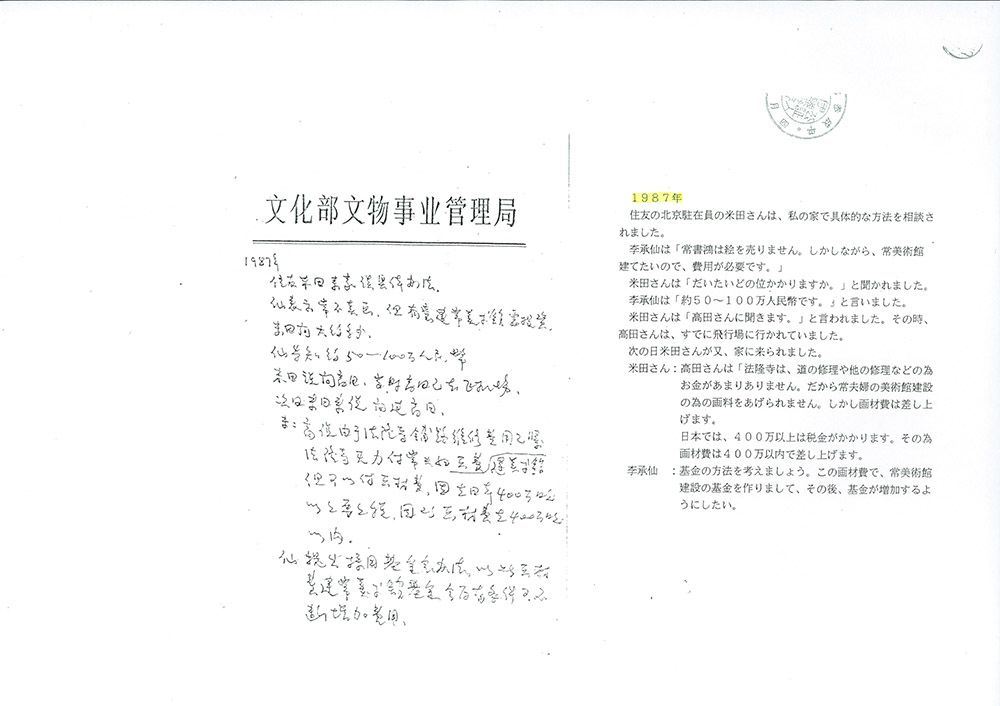 文化部文物事业管理局
1987年
住友米田来家谈具体办法.
仙表示常不卖画, 但有意建常美术馆需投资.
米田问大约多少.
仙告知约50—100万人民币
米田说问高田, 当时高田已去飞机场.
次日米田来说
米: 高说由于法隆寺铺路维修费用已紧
法隆寺无力付常夫妇画费建美术馆
但可以付画材费, 因在日本400万日元
以上要上税, 因此画材费在400万日元
以内.
仙 提出採用基金会办法, 以此画材
费建常美术馆基金
断增加费用.
1987年
住友の北京駐在員の米田さんは、私の家で具体的な方法を相談さ
れました。
李承仙は「常書鴻は絵を売りません。しかしながら、常美術館
建てたいので、費用が必要です。」
米田さんは「だいたいどの位かかりますか。」と聞かれました。
李承仙は「約50〜100万人民幣です。」と言いました。
米田さんは「高田さんに聞きます。」と言われました。その時、
高田さんは、すでに飛行場に行かれていました。
次の日米田さんが又、家に来られました。
米田さん：高田さんは「法隆寺は、道の修理や他の修理などの為
お金があまりありません。だから常夫婦の美術館建設
の為の画料をあげられません。しかし画材費は差し上
げます。
日本では、400万以上は税金がかかります。その為
画材費は400万以内で差し上げます。
李承仙　：基金の方法を考えましょう。この画材費で、常美術館
建設の基金を作りまして、その後、基金が増加するよ
うにしたい。